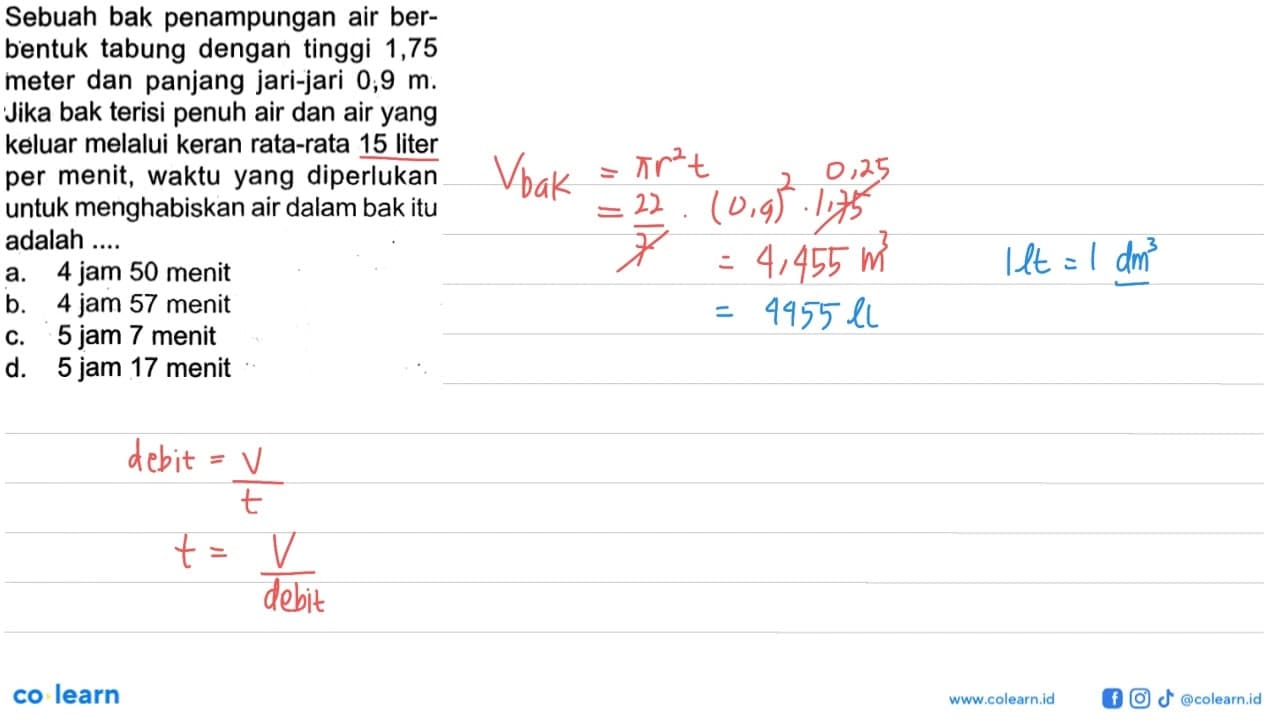 Sebuah bak penampungan air ber-
bentuk tabung dengan tinggi 1,75
meter dan panjang jari-jari 0,9 m.
Jika bak terisi penuh air dan air yang
keluar melalui keran rata-rata 15 liter
per menit, waktu yang diperlukan
untuk menghabiskan air dalam bak itu
adalah ....
a. 4 jam 50 menit
b. 4 jam 57 menit
c. 5 jam 7 menit
d. 5 jam 17 menit
Vbak = πr²t
0,25
= 22/7 . (0,9)² . 1,75
= 4,455 m³
= 4455 lt
1 lt = 1 dm³
debit = V/t
t = V/debit
co learn
www.colearn.id
@colearn.id